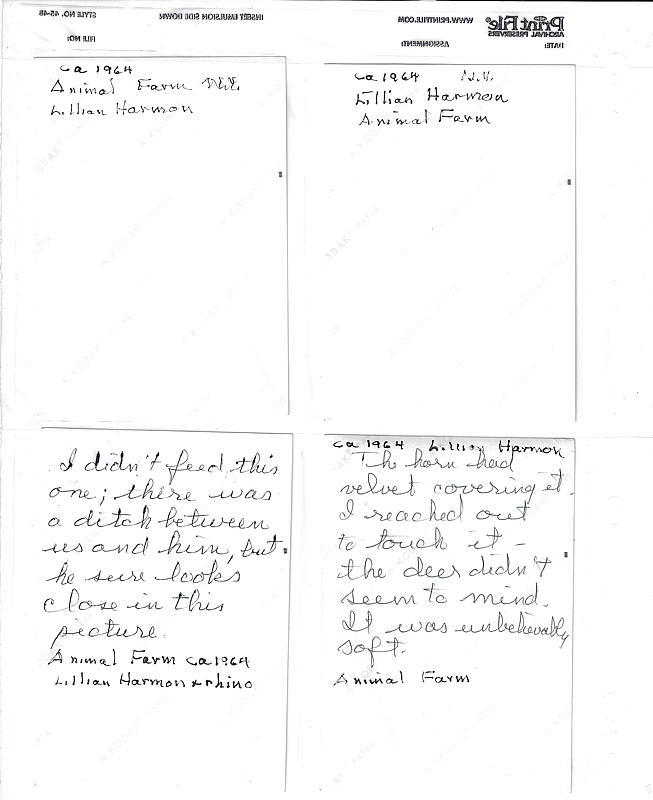 STYLE NO. 45-4B
INSERT EMULSION SIDE DOWN
WWW.PRINTFILE.COM
Print File®
ARCHIVAL PRESERVERS
FILE NO:
ASSIGNMENT:
DATE:
ca 1964
Animal Farm
Lillian Harmon
ca 1964 N.Y.
Lillian Harmon
Animal Farm
I didn't feed this
one; there was
a ditch between
us and him, but
he sure looks
close in this
picture.
Animal Farm ca 1964
Lillian Harmon & rhino
ca 1964 Lillian Harmon
Th horn had
velvet covering it.
I reached out
to touch it -
the deer didn't
seem to mind.
It was unbelievably
soft.
Animal Farm
A KODAK PAPER